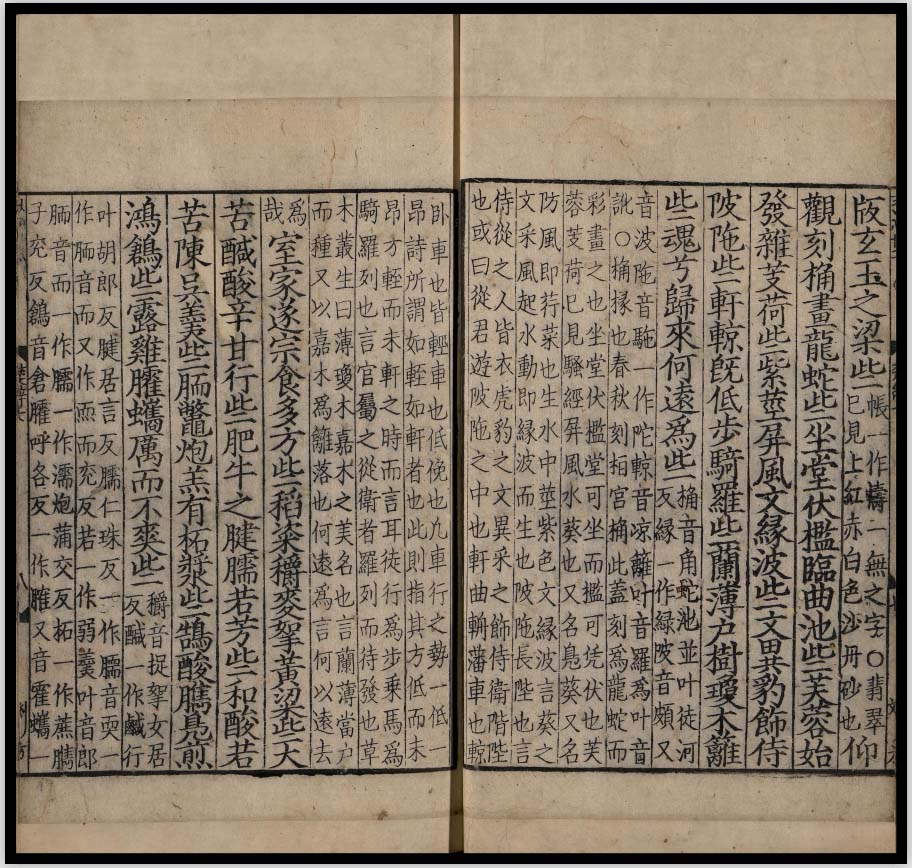 版玄玉之梁些帳一作幬一無之字○翡翠
已見上紅赤白色沙丹砂也仰
觀刻桷畫龍蛇些坐堂伏檻臨曲池些芙蓉始
發雜芰荷些紫莖屏風文緣波些文異豹飾侍
陂陁些軒輬既低步騎羅些蘭薄戶樹瓊木籬
些魂兮歸來何遠爲些桷音角蛇池並叶徒河
反緣一作綠陂音頗又
音波陁音駞一作陀輬音凉籬叶音羅爲叶音
訛○桷椽也春秋刻桓宮桷此蓋刻爲龍蛇而
彩畫之也坐堂伏檻堂可坐而檻可凭伏也芙
蓉芰荷已見騷經屏風水葵也又名鳧葵又名
防風即荇菜也生水中而莖紫色文緣波言葵之
文采風起水動即緣波而生也陂陁長陛也言
侍從之人皆衣虎豹之文異采之飾侍衛階陛
也或曰從君遊陂陁之中也軒曲輈藩車也輬
臥車也皆輕輕車也低俛也凡車行之勢一低一
昂詩所謂如輊如軒者也此則指其方低而未
昂方輊而未軒之時而言耳徒行爲步乘馬爲
騎羅列也言官屬之從衛者羅列而待發也草
木叢生曰薄瓊木嘉木之美名也言蘭薄當戶
而種又以嘉木爲籬落也何遠爲言何以遠去
爲
哉室家遂宗食多方些稻粢穱麥挐黃粱些大
苦醎酸辛甘行些肥牛之腱臑若芳些和酸若
苦陳吳羹些胹鼈炮羔有柘漿些鵠酸臇鳧煎
鴻鶬些露雞臛蠵厲而不爽些穱音捉挐女居
反醎一作鹹行
叶胡郎反腱居言反臑仁珠反一作臑音耎一
作胹音而又作而兖反若一作弱羹叶音郎
胹音而一作臑一作濡炮蒲交反柘一作蔗臇
子兖反鶬音倉臛呼各反一作膗又音霍蠵一